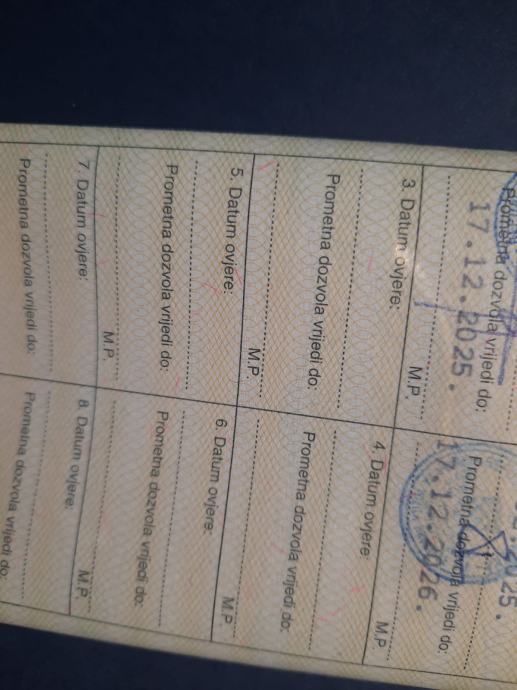 Prometna dozvola vrijedi do:
17.12.2025.
3. Datum ovjere:
M.P.
Prometna dozvola vrijedi do:
5. Datum ovjere:
M.P.
Prometna dozvola vrijedi do:
7. Datum ovjere:
M.P.
Prometna dozvola vrijedi do:
Prometna dozvola vrijedi do:
17.12.2026.
4. Datum ovjere
M.P.
Prometna dozvola vrijedi do:
6. Datum ovjere:
M.P.
Prometna dozvola vrijedi do:
8. Datum ovjere:
M.P.
Prometna dozvola vrijedi do: